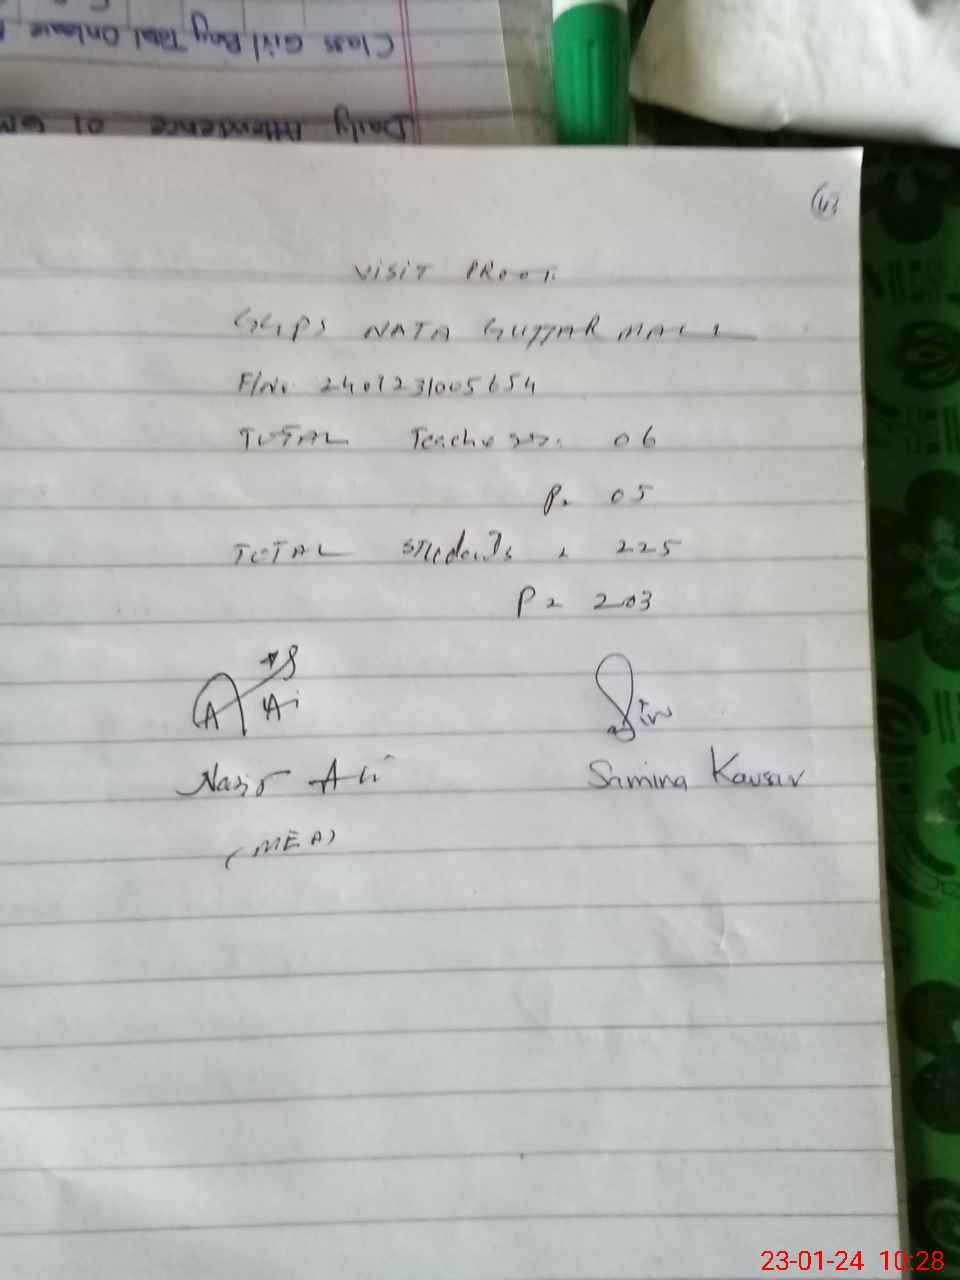 Class Girl Boy Total Onleave
Daily Attendence 01
VISIT PROOF
GGPS NATA GUJJAR MALL
F/No 2401231005654
TOTAL Teachers. 06
P. 05
TOTAL Students = 225
P = 203
Nasir Ali
Samina Kausar
(MEA)
23-01-24 10:28